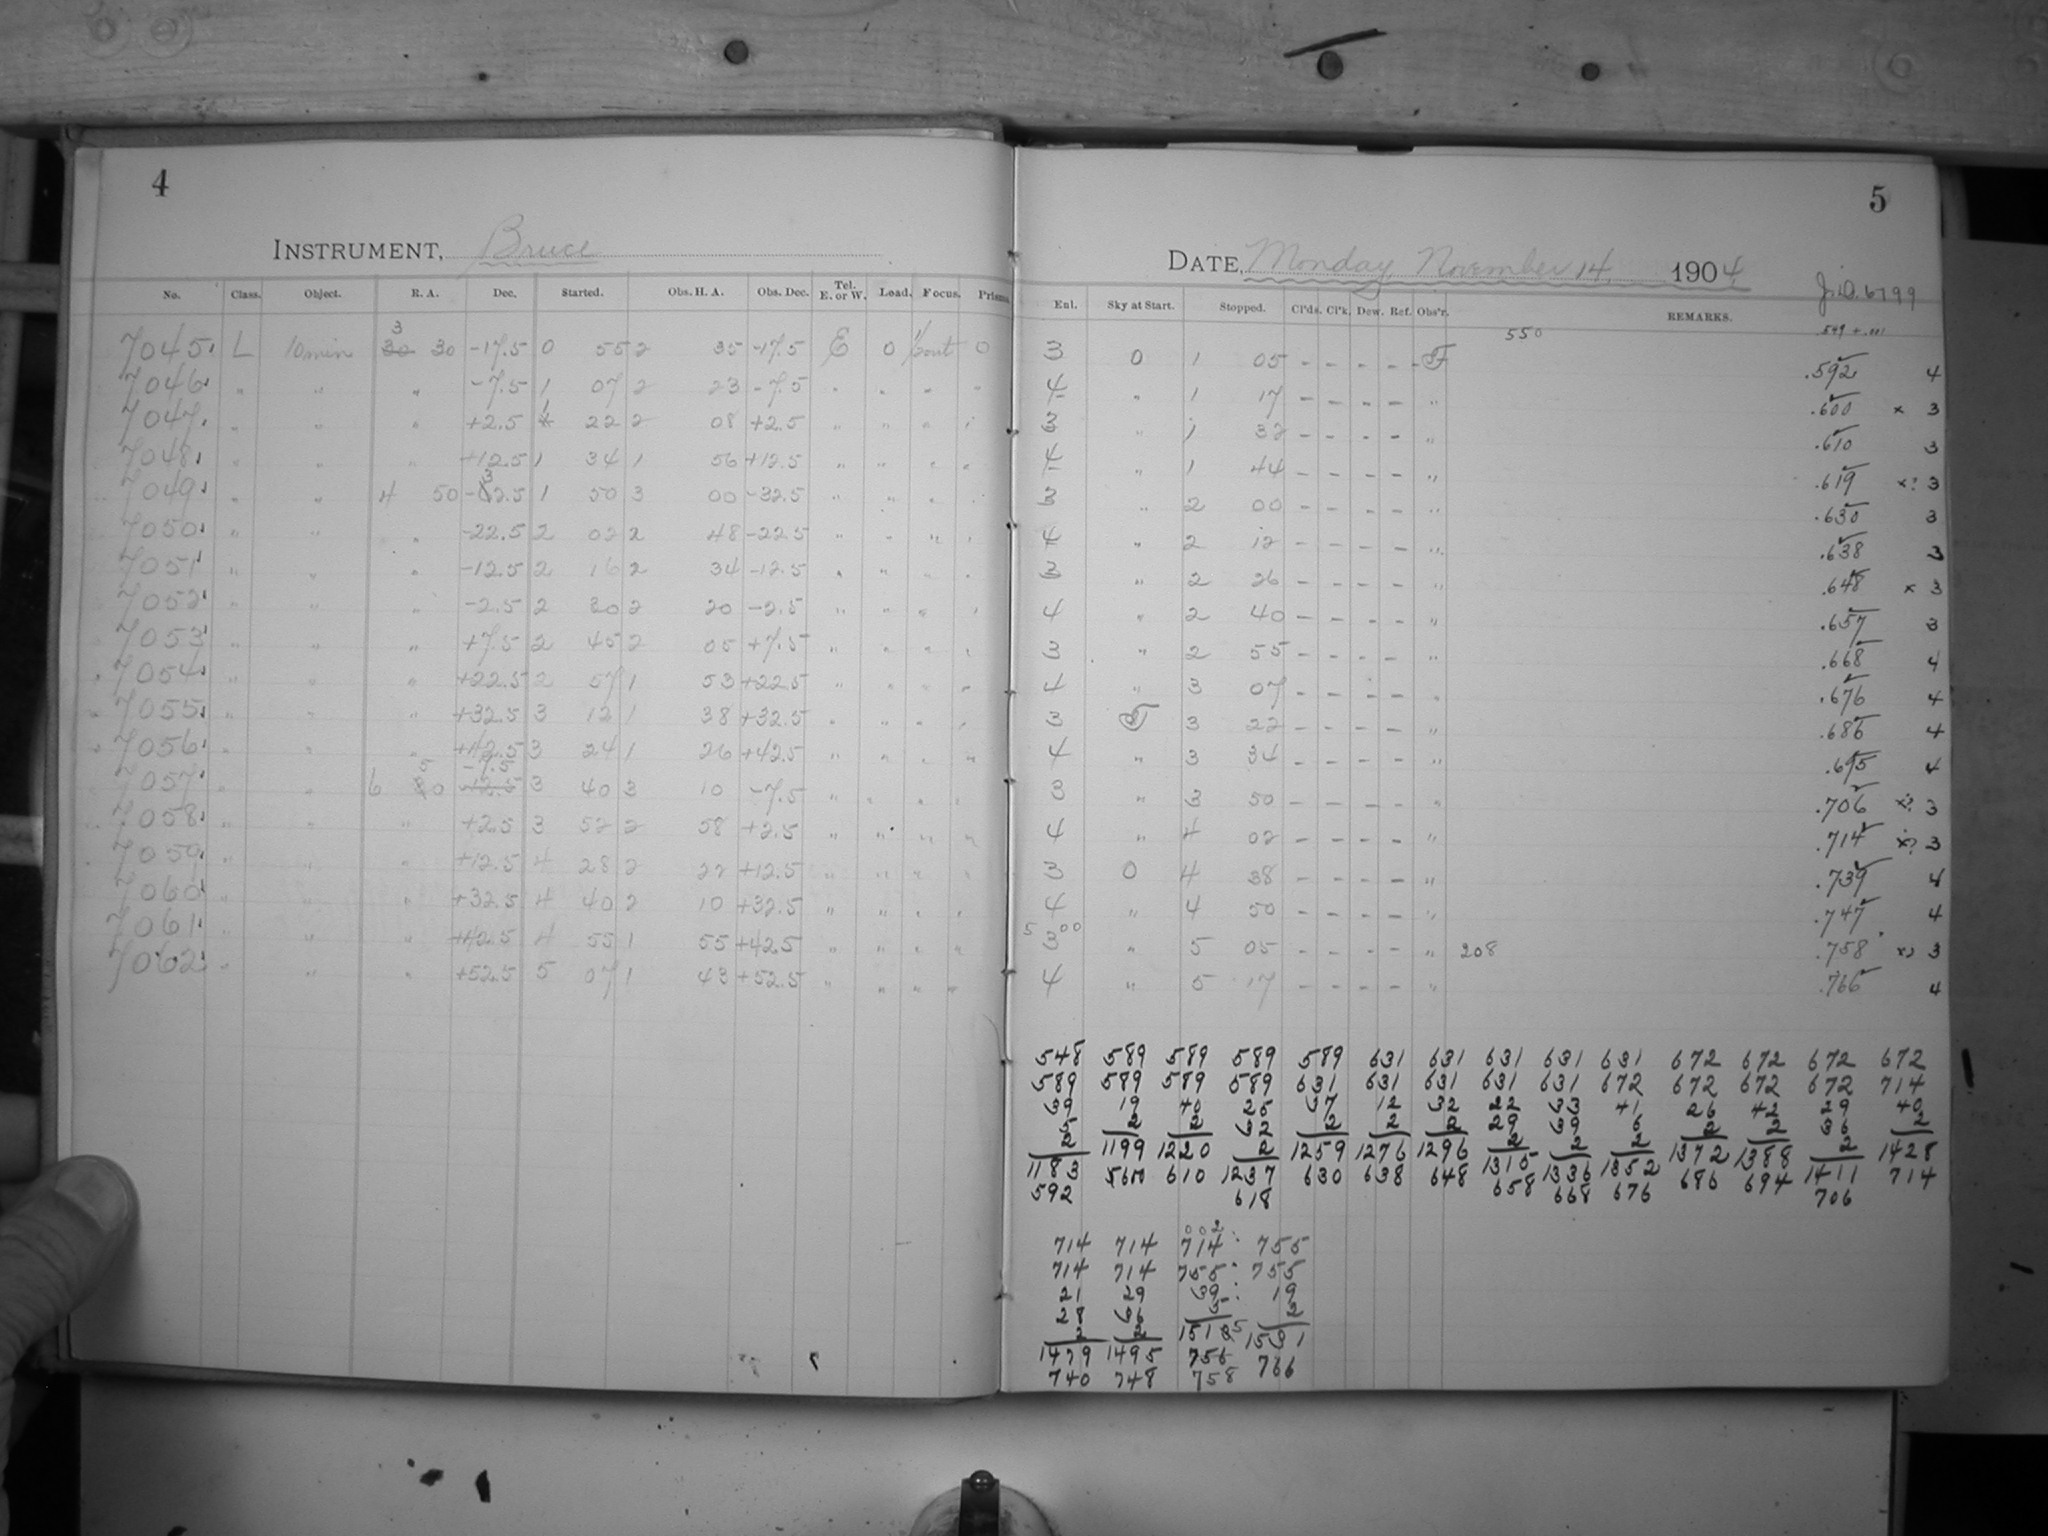 4
INSTRUMENT, Bruce
No. Class. Object. R. A. Dec. Started. Obs. H. A. Obs. Dec. Tel. E. or W. Load. Focus. Prisms.
7045 L 10 min 3 30 30 -17.5 0 55 2 35 -17.5 E 0 0
7046 " " " -7.5 1 07 2 23 -7.5 " " " "
7047 " " " +2.5 1 22 2 08 +2.5 " " " "
7048 " " " +12.5 1 34 1 56 +12.5 " " " "
7049 " " 4 50 -32.5 1 50 3 00 -32.5 " " " "
7050 " " " -22.5 2 02 2 48 -22.5 " " " "
7051 " " " -12.5 2 16 2 34 -12.5 " " " "
7052 " " " -2.5 2 30 2 20 -2.5 " " " "
7053 " " " +7.5 2 45 2 05 +7.5 " " " "
7054 " " " +22.5 2 57 1 53 +22.5 " " " "
7055 " " " +32.5 3 12 1 38 +32.5 " " " "
7056 " " " +42.5 3 24 1 26 +42.5 " " " "
7057 " " 6 50 -7.5 3 40 3 10 -7.5 " " " "
7058 " " " +2.5 3 52 2 58 +2.5 " " " "
7059 " " " +12.5 4 28 2 22 +12.5 " " " "
7060 " " " +32.5 4 40 2 10 +32.5 " " " "
7061 " " " +42.5 4 55 1 55 +42.5 " " " "
7062 " " " +52.5 5 07 1 43 +52.5 " " " "
5
DATE, Monday November 14, 1904
J.D. 6799
Enl. Sky at Start. Stopped. Cl'ds. Cl'k. Dew. Ref. Obs'r. REMARKS.
550 .549 + .001
3 0 1 05 - - - - .592 4
4 " 1 17 - - - - " .600 x 3
3 " 1 32 - - - - " .610 3
4 " 1 44 - - - - " .619 x? 3
3 " 2 00 - - - - " .630 3
4 " 2 12 - - - - " .638 3
3 " 2 26 - - - - " .648 x 3
4 " 2 40 - - - - " .657 3
3 " 2 55 - - - - " .668 4
4 " 3 07 - - - - " .676 4
3 3 22 - - - - " .686 4
4 " 3 34 - - - - " .695 4
3 " 3 50 - - - - " .706 x? 3
4 " 4 02 - - - - " .714 x? 3
3 0 4 38 - - - - " .739 4
4 " 4 50 - - - - " .747 4
5 00
3 " 5 05 - - - - " 208 .758 x? 3
4 " 5 17 - - - - " .766 4
548 589 589 589 589 631 631 631 631 631 672 672 672 672
589 589 589 589 631 631 631 631 631 672 672 672 672 714
39 19 40 25 37 12 32 22 33 41 26 42 29 40
5 2 2 32 2 2 2 29 39 6 2 2 36 2
2 1199 1220 2 1259 1276 1296 2 2 2 1372 1388 2 1428
1183 610 1237 630 638 648 1315 1336 1352 686 694 1411 714
592 618 658 668 676 706
714 714 714 755
714 714 755 755
21 29 39 19
28 36 5 2
2 2 1531
1479 1495 756 766
740 748 758